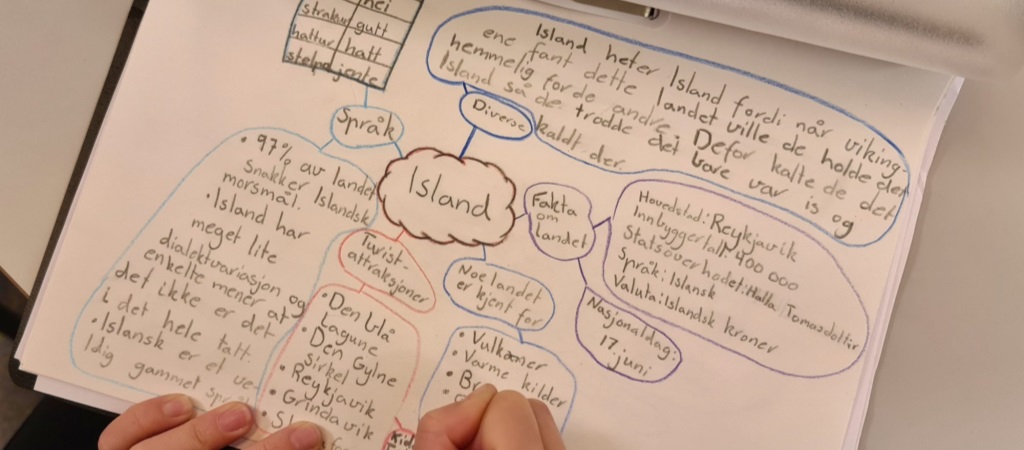 nei
strakur gutt
hattur hatt
stelpa jente
Språk
Diverse
Island heter Island fordi når viking
ene fant dette landet ville de holde det
hemmelig forde andre. Defor kalte de det
Island så de trodde det bare var is og
kaldt der.
Island
• 97% av landet
snakker Islandsk
morsmål.
• Island har
meget lite
dialektvariasjon og
enkelte mener at
det ikke er det
i det hele tatt.
• Islansk er et ve-
ldig gammet språ
Turist-
attraksjoner
• Den blå
Lagune
• Den Gylne
Sirkel
• Reykjavik
• Grindavik
Noe landet
er kjent for
• Vulkaner
• Varme kilder
Fakta
om
landet
Hovedstad: Reykjavik
Innbyggertall: 400 000
Statsoverhodet: Halla Tomazdottir
Språk: Islansk
Valuta: Islandsk kroner
Nasjonaldag:
17.
juni